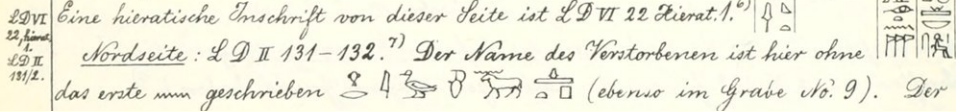 LDVI 22, hierat. 1.
LD II 131/2.
Eine hieratische Inschrift von dieser Seite ist LD VI 22 Hierat. 1.⁶⁾
Nordseite: LD II 131-132.⁷⁾ Der Name des Verstorbenen ist hier ohne
das erste 𓈖 geschrieben (ebenso im Grabe No. 9). Der